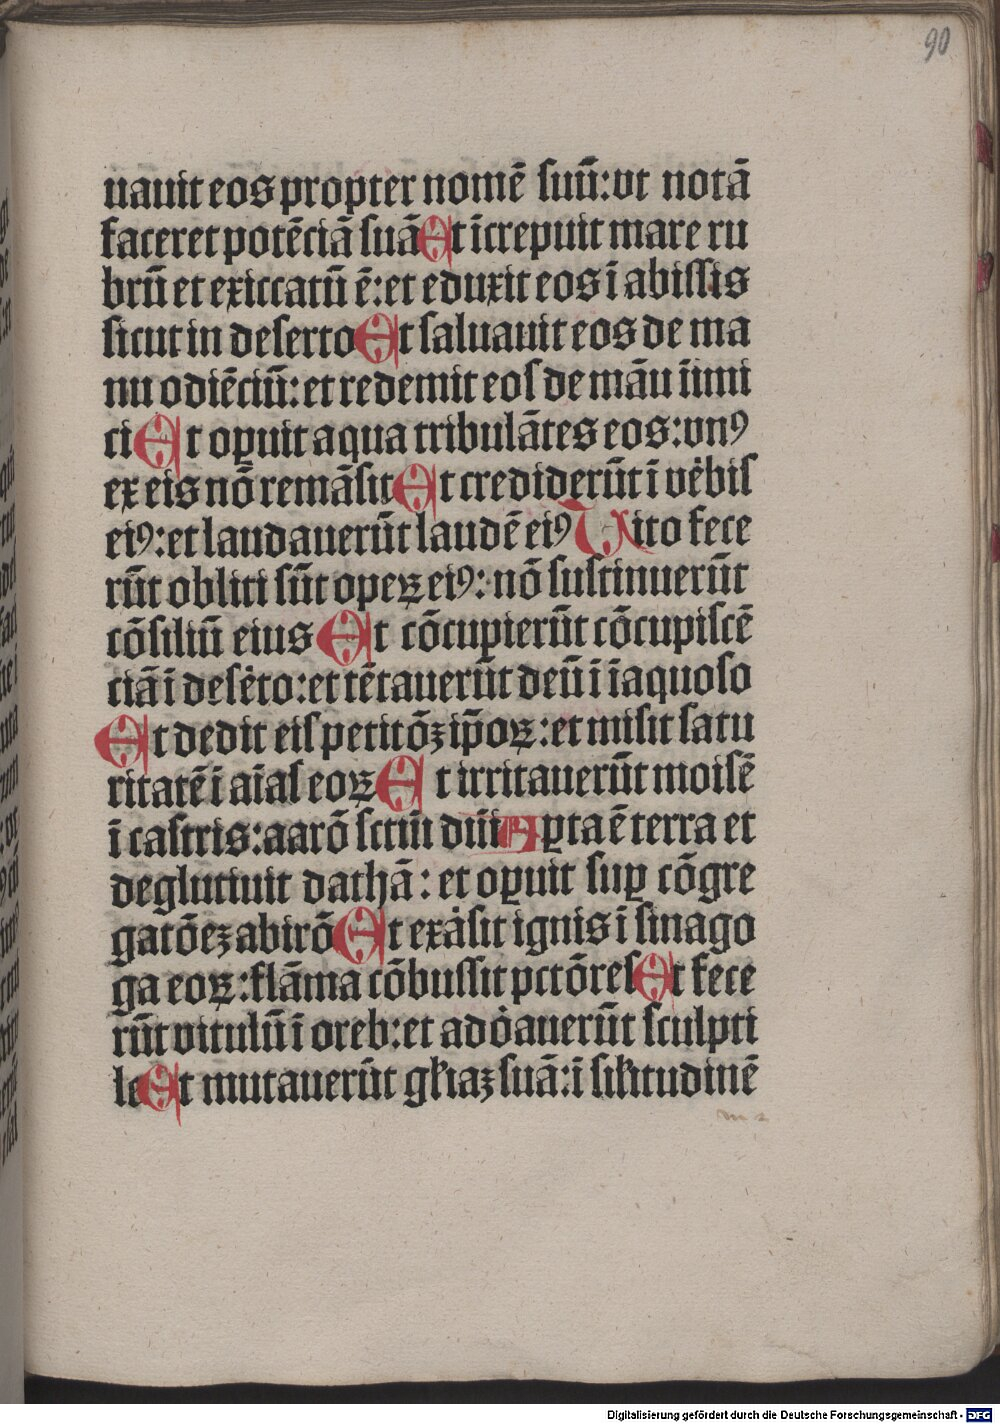 90
uauit eos propter nomē suū: vt notā
faceret potēciā suā Et īcrepuit mare ru
brū et exiccatū ē: et eduxit eos ī abissis
sicut in deserto Et saluauit eos de ma
nu odiēciū: et redemit eos de māu īimi
ci Et oꝑuit aqua tribulātes eos: vnꝰ
ex eis nō remāsit Et crediderūt ī vėbis
eiꝰ: et laudauerūt laudē eiꝰ Cito fece
rūt obliti sūt opeꝝ eiꝰ: nō sustinuerūt
cōsiliū eius Et cōcupierūt cōcupiscē
ciā ī desėto: et tētauerūt deū ī īaquoso
Et dedit eis petitōꝫ ip̄oꝝ: et misit satu
ritatē ī aīas eoꝝ Et irritauerūt moisē
ī castris: aarō sctm̄ dn̄i Aꝑta ē terra et
deglutiuit dathā: et oꝑuit suꝑ cōgre
gatōeꝫ abirō Et exȧsit ignis ī sinago
ga eoꝝ: flāma cōbussit pctōres Et fece
rūt vitulū ī oreb: et adȯauerūt sculpti
le Et mutauerūt gƚiaꝫ suā: ī siƚitudinē
Digitalisierung gefördert durch die Deutsche Forschungsgemeinschaft - DFG